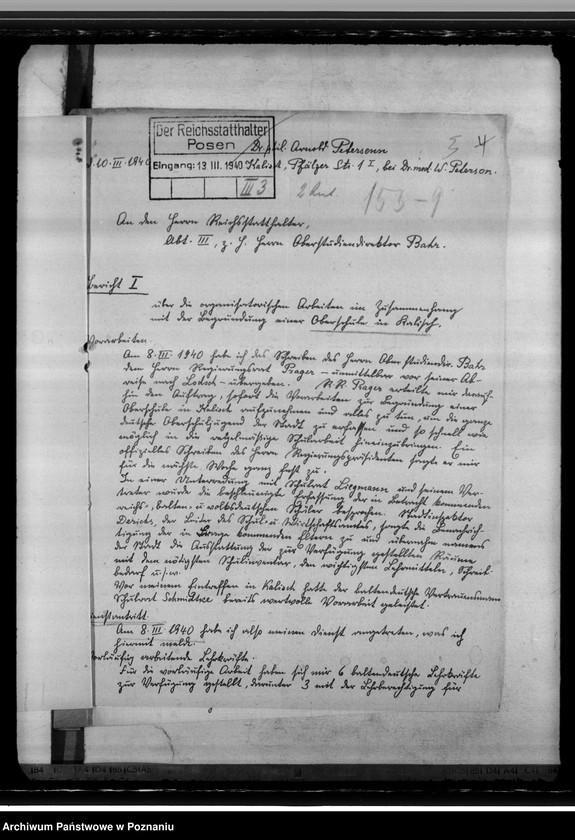 Der Reichsstatthalter
Posen
Eingang: 13 III. 1940
III 3
Dr. phil. Arnold Petersenn
10. III. 1940
Kalisch, Pfälzer Str. 1 I, bei Dr. med. W. Peterson.
5 4
153-9
An den Herrn Reichsstatthalter,
Abt. III, z. H. Herrn Oberstudiendirektor Bahr.
Bericht I
über die organisatorischen Arbeiten im Zusammenhang
mit der Begründung einer Oberschule in Kalisch.
Vorarbeiten.
Am 8. III 1940 habe ich das Schreiben des Herrn Oberstudiendir. Bahr
dem Herrn Regierungsrat Prager – unmittelbar vor seiner Ab-
reise nach – übergeben. R.R. Prager erteilte mir darauf-
hin den Auftrag, sofort die Vorarbeiten zur Begründung einer
Oberschule in Kalisch aufzunehmen und alles zu tun, um die ganze
deutsche Oberschuljugend der Stadt zu erfassen und so schnell wie
möglich in die regelmäßige Schularbeit hineinzubringen. Ein
offizielles Schreiben des Herrn Regierungspräsidenten sagte er mir
für die nächste Woche ganz fest zu.
In einer Unterredung mit Schulrat Liegmann und seinem Ver-
treter wurde die beschleunigte Erfassung der in Betracht kommenden
reichs-, balten- u. volksdeutschen Schüler besprochen. Stadtinspektor
der Leiter des Schul- u. Wirtschaftsamtes, sorgte die Benachrich-
tigung der in Frage kommenden Eltern zu und übernahm namens
der Stadt die Ausstattung der zur Verfügung gestellten Räume
mit dem nötigsten Schulinventar, den wichtigsten Lehrmitteln, Schreib-
bedarf u.s.w.
Vor meinem Eintreffen in Kalisch hatte der baltendeutsche Vertrauensmann
Schulrat bereits wertvolle Vorarbeit geleistet.
Dienstantritt.
Am 8. III 1940 habe ich also meinen Dienst angetreten, was ich
hiermit melde.
Vorläufig arbeitende Lehrkräfte.
Für die vorläufige Arbeit haben sich mir 6 baltendeutsche Lehrkräfte
zur Verfügung gestellt, darunter 3 mit der Lehrberechtigung für
Archiwum Państwowe w Poznaniu